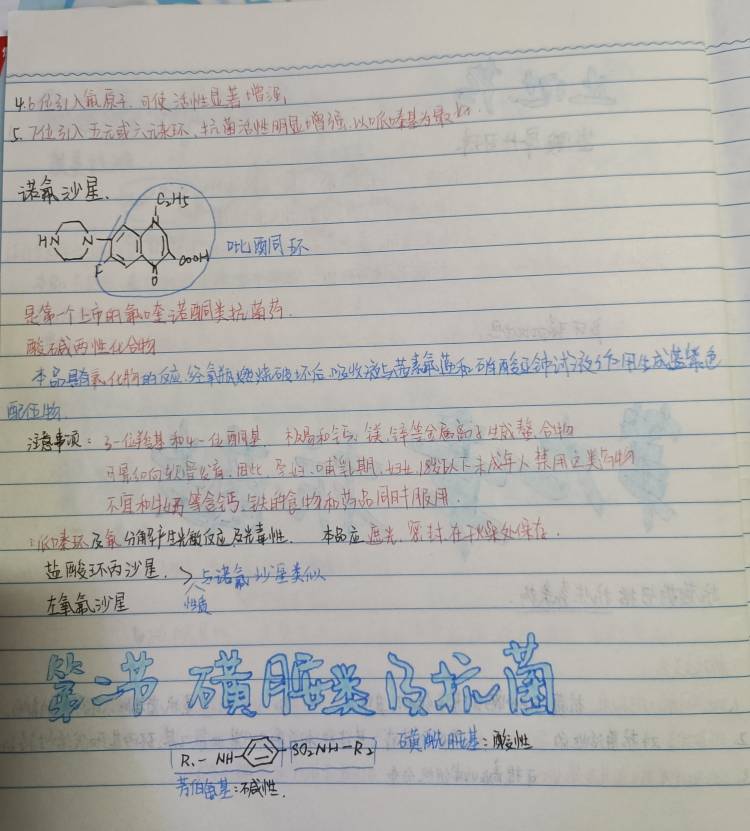 4.6位引入氟原子,可使活性显著增强,
5.7位引入五元或六元杂环,抗菌活性明显增强,以哌嗪基为最好.
诺氟沙星.
C2H5
HN N N
F O COOH 吡酮环
是第一个上市的氟喹诺酮类抗菌药.
酸碱两性化合物
本品具有氟化物的反应,经氧瓶燃烧破坏后,吸收液与茜素氟蓝和硝酸亚铈试液作用生成蓝紫色
配位物.
注意事项:3-位羧基和4-位酮基.极易和钙、镁、锌等金属离子生成螯合物
可影响软骨发育,因此,孕妇、哺乳期、18岁以下未成年人禁用这类药物
不宜和牛奶等含钙、铁的食物和药品同时服用.
:哌嗪环及氟分解产生光敏反应及光毒性. 本品应遮光、密封,在干燥处保存.
盐酸环丙沙星. 与诺氟沙星类似
左氧氟沙星 性质
第二节 磺胺类及抗菌
R1- NH- -SO2NH-R2 磺酰胺基:酸性
芳伯氨基:碱性.